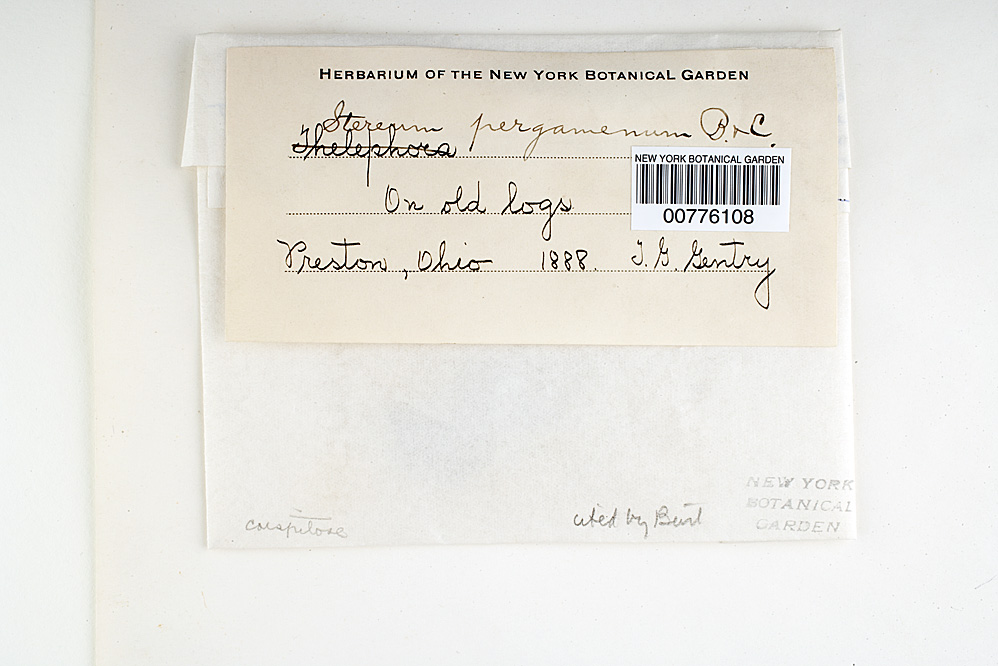 HERBARIUM OF THE NEW YORK BOTANICAL GARDEN
Stereum pergamenum B. & C.
Thelephora
NEW YORK BOTANICAL GARDEN
00776108
On old logs
Preston, Ohio 1888. T. G. Gentry
NEW YORK
BOTANICAL
GARDEN
caespitose
cited by Burt